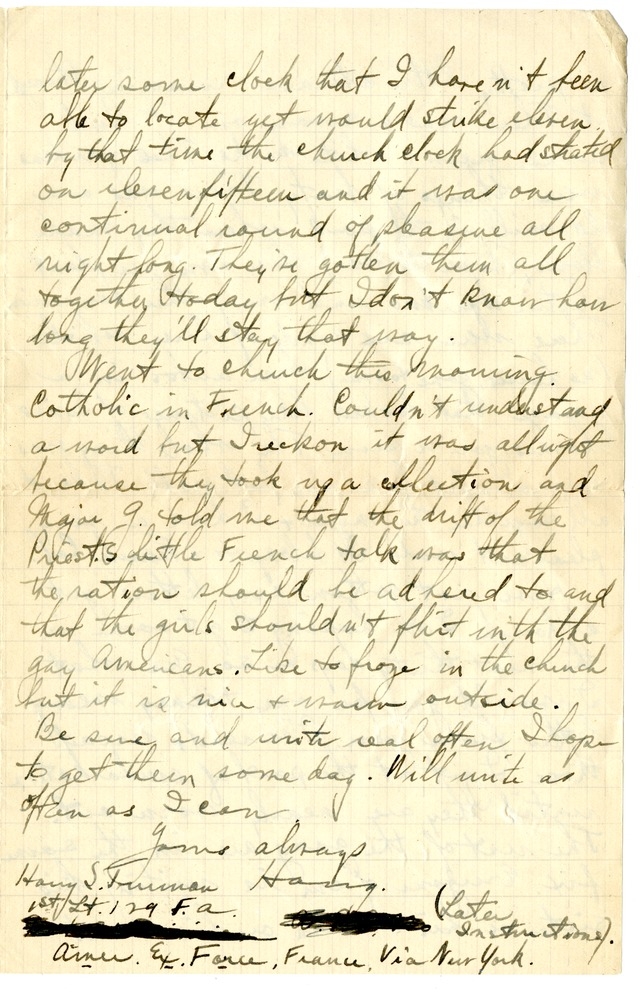 later some clock that I haven't been
able to locate yet would strike eleven
by that time the church clock had strated
on elevenfifteen and it was one
continual round of pleasure all
night long. They've gotten them all
together today but I don't know how
long they'll stay that way.
Went to church this morning.
Catholic in French. Couldn't understand
a word but I reckon it was allright
because they took up a collection and
Major G. told me that the drift of the
Priest's little French talk was that
the ration should be adhered to and
that the girls shouldn't flirt with the
gay Americans. Like to froze in the church
but it is nice + warm outside.
Be sure and write real often I hope
to get them some day. Will write as
often as I can
Yours always
Harry S. Truman Harry.
1st Lt. 129 F.A.
(Later
Instructions).
Amer. Ex. Force, France, Via New York.